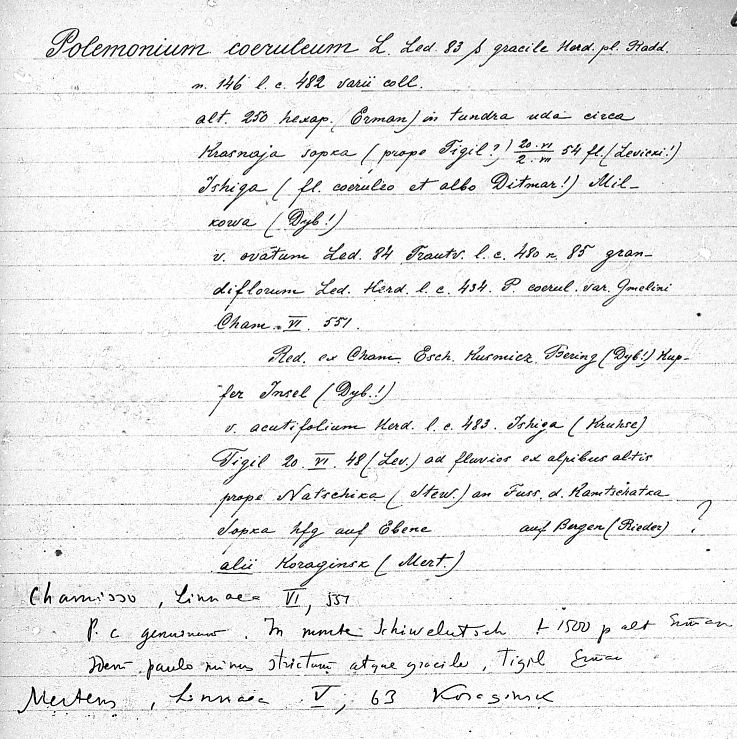 Polemonium coeruleum L. Led. 83 β gracile Herd. pl. Radd.
n. 146 l. c. 482 varii coll.
alt. 250 hexap. (Erman) in tundra uda circa
Krasnaja sopka (prope Tigil?) 20.VI / 2.VII 54 fl. (Levicki!)
Ishiga (fl. coeruleo et albo Ditmar!) Mil-
kowa (Dyb!)
v. ovatum Led. 84 Trautv. l. c. 480 n. 85 gran-
diflorum Led. Herd. l. c. 434. P. coerul. var. Gmelini
Cham. VI. 551.
Red. ex Cham. Esch. Kusmicz. Bering (Dyb!) Kup-
fer Insel (Dyb.!)
v. acutifolium Herd. l. c. 483. Ishiga (Kruhse)
Tigil 20. VI. 48 (Lev.) ad fluvios ex alpibus altis
prope Natschika (Stew.) an Fuss. d. Kamtschatka
Sopka hfg auf Ebene auf Bergen (Rieder) ?
alii Koraginsk (Mert.)
Chamisso, Linnaea VI, 551
P. c genuinum. In monte Schiwelutsch + 1500 p alt Erman
Idem paulo minus strictum atque gracile, Tigil Erman
Mertens, Linnaea V, 63 Koraginsk